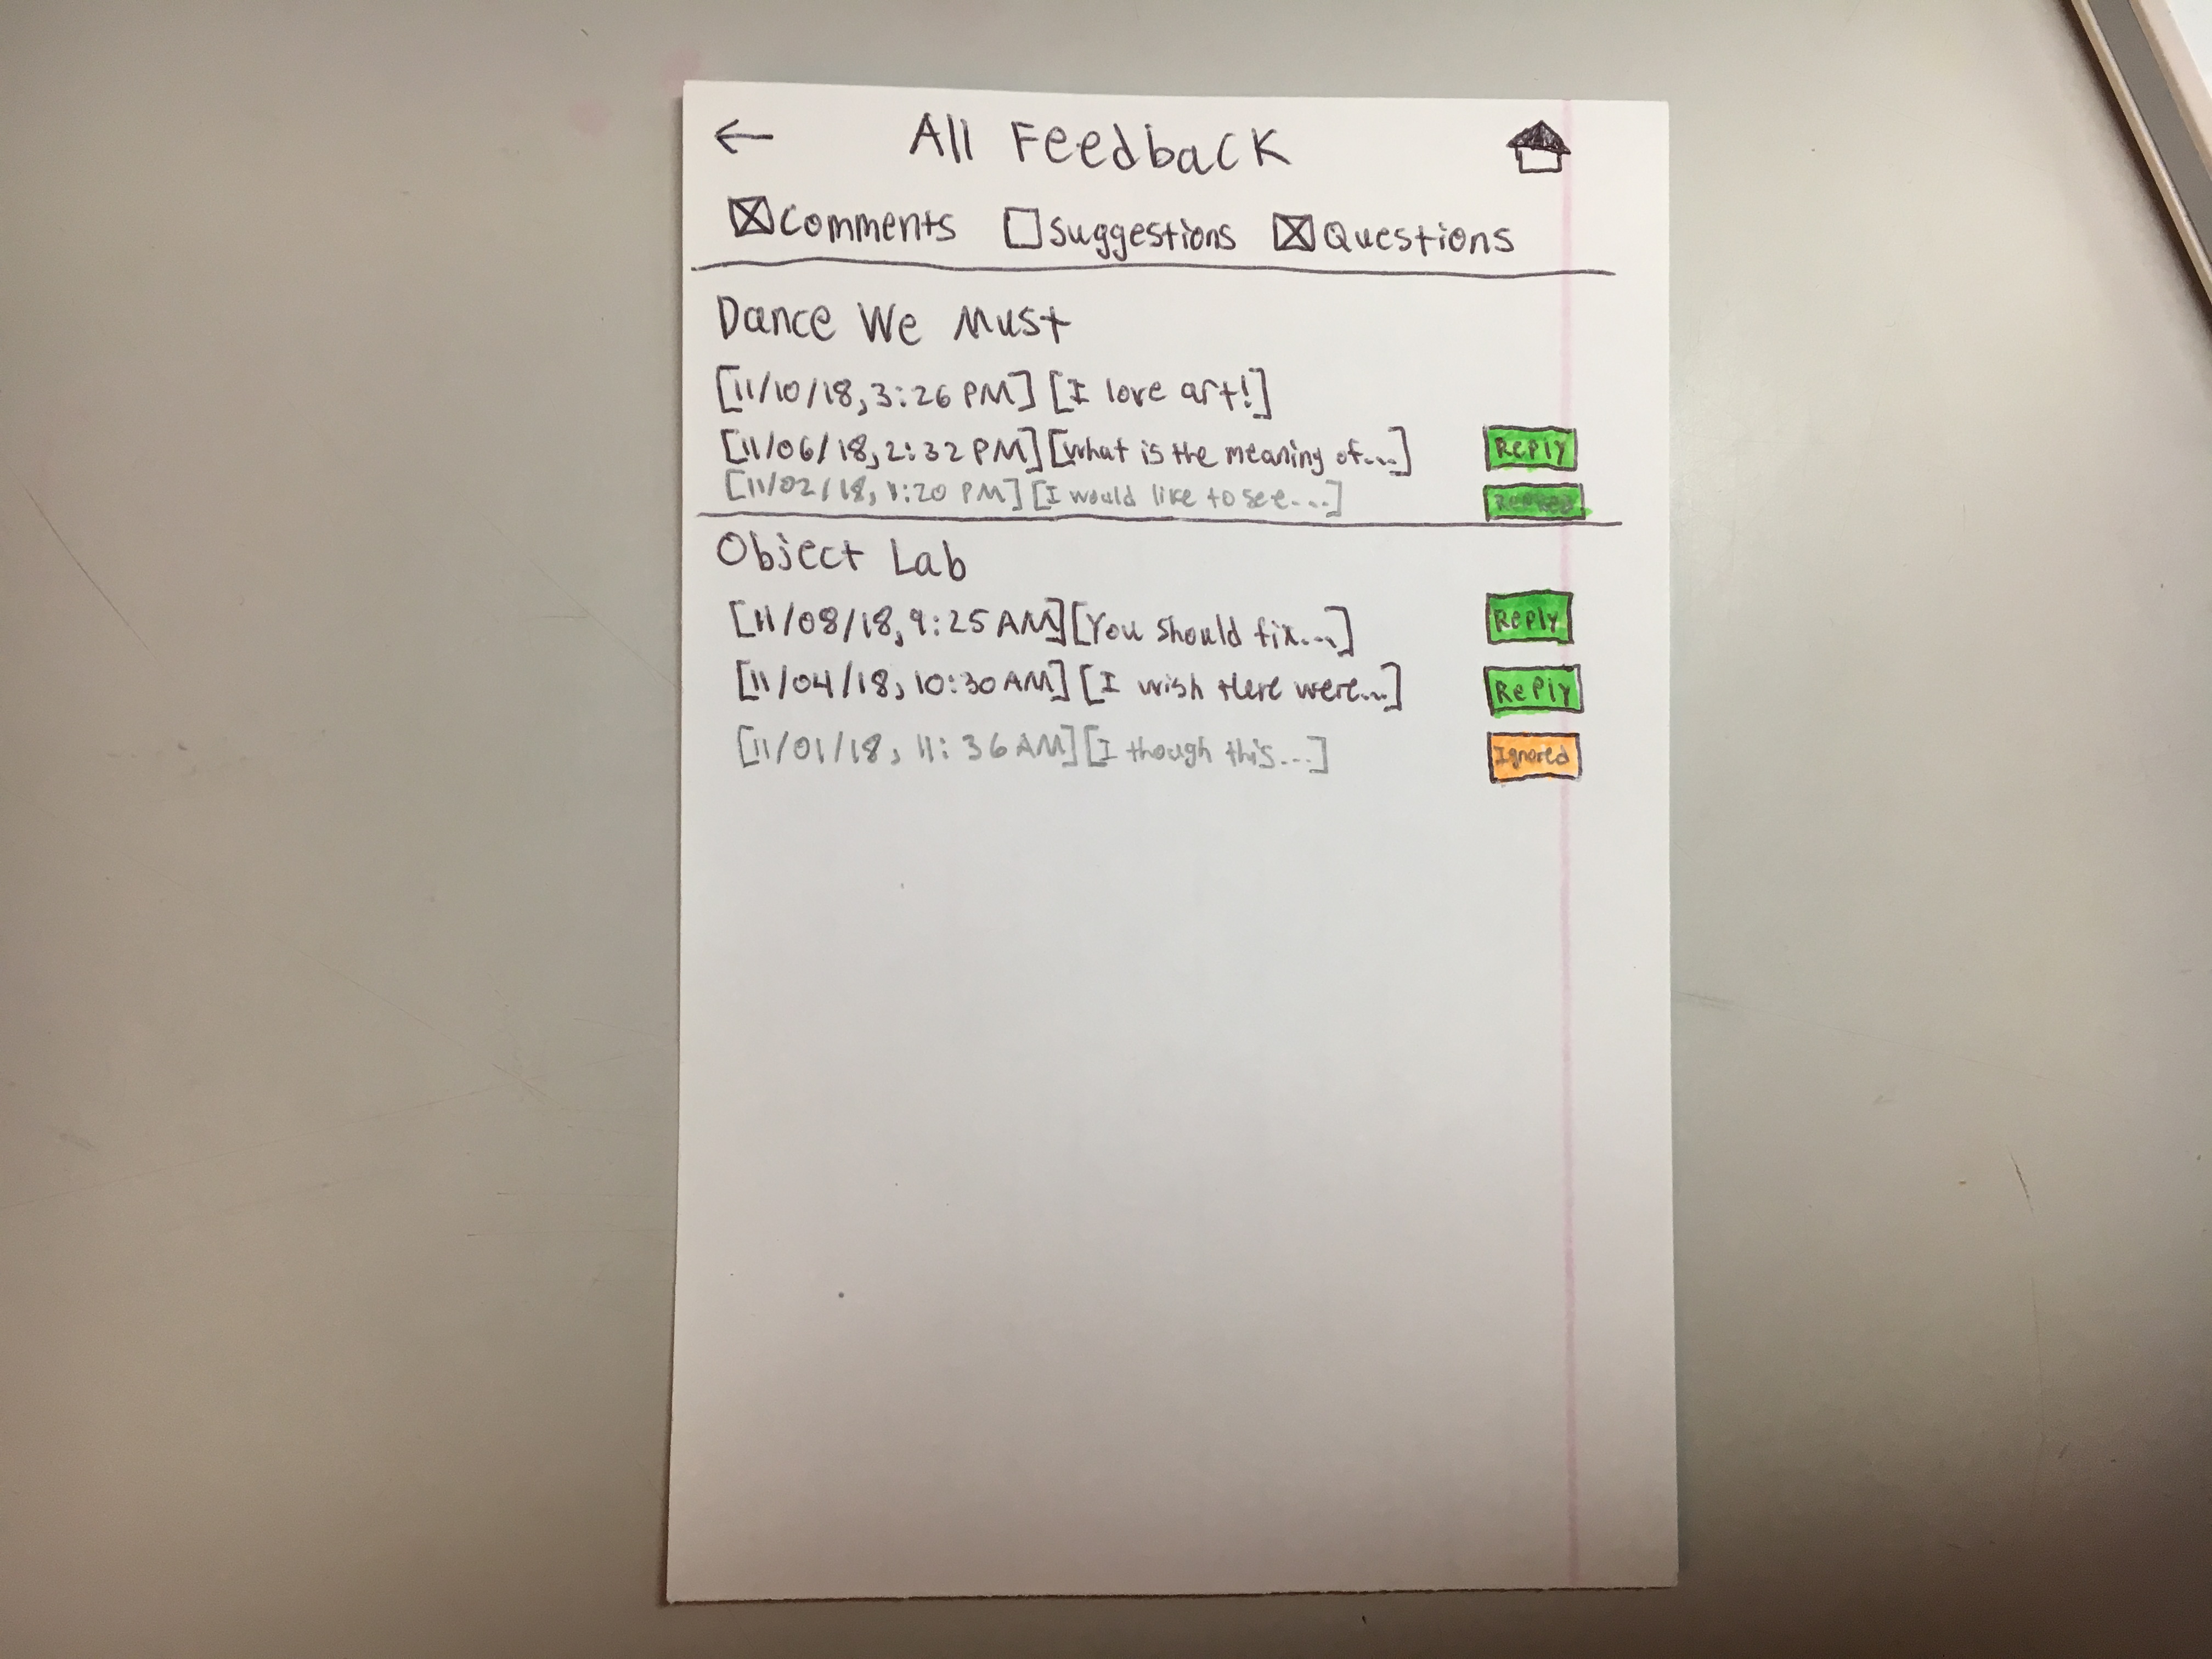 ← All Feedback
☒ Comments ☐ Suggestions ☒ Questions
Dance We Must
[11/10/18, 3:26 PM] [I love art!]
[11/06/18, 2:32 PM] [what is the meaning of...] Reply
[11/02/18, 1:20 PM] [I would like to see...]
Object Lab
[11/08/18, 9:25 AM] [You should fix...] Reply
[11/04/18, 10:30 AM] [I wish there were...] Reply
[11/01/18, 11:36 AM] [I though this...] Ignored